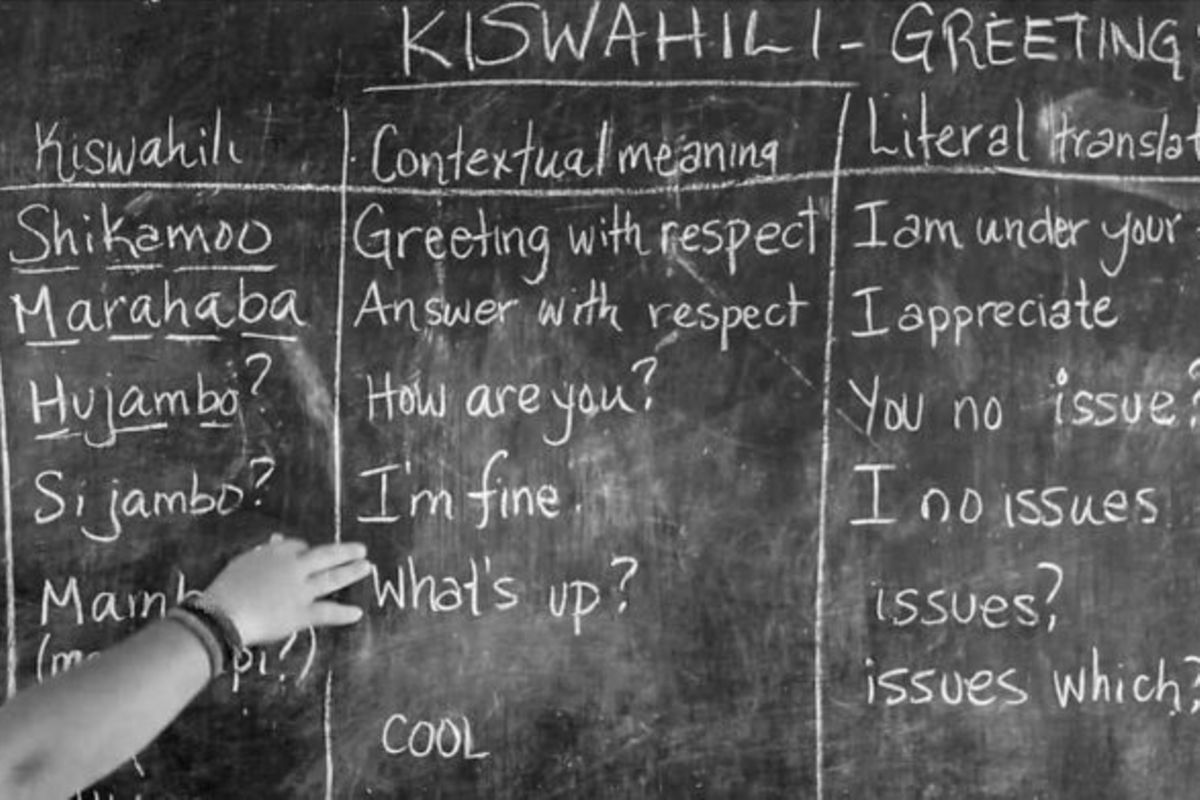 KISWAHILI - GREETING
Kiswahili Contextual meaning Literal
Shikamoo Greeting with respect I am under your
Marahaba Answer with respect I appreciate
Hujambo? How are you? You no issue?
Sijambo? I'm fine. I no issues
What's up? issues?
issues which?
COOL